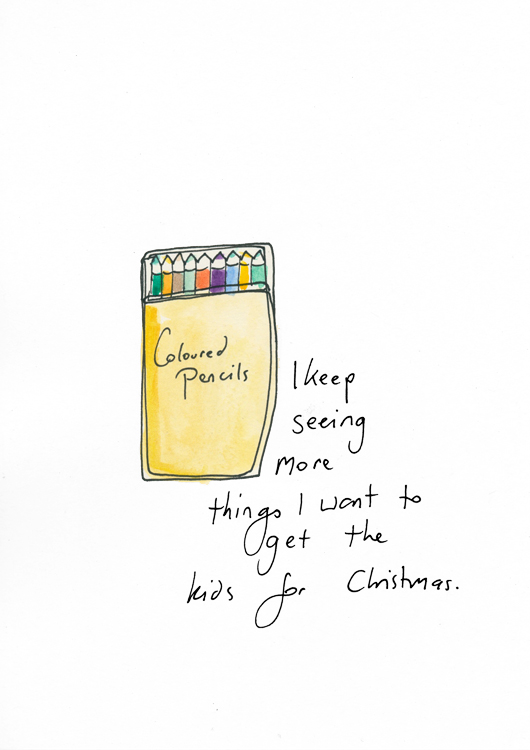 Coloured
Pencils
I keep
seeing
more
things I want to
get the
kids for Christmas.